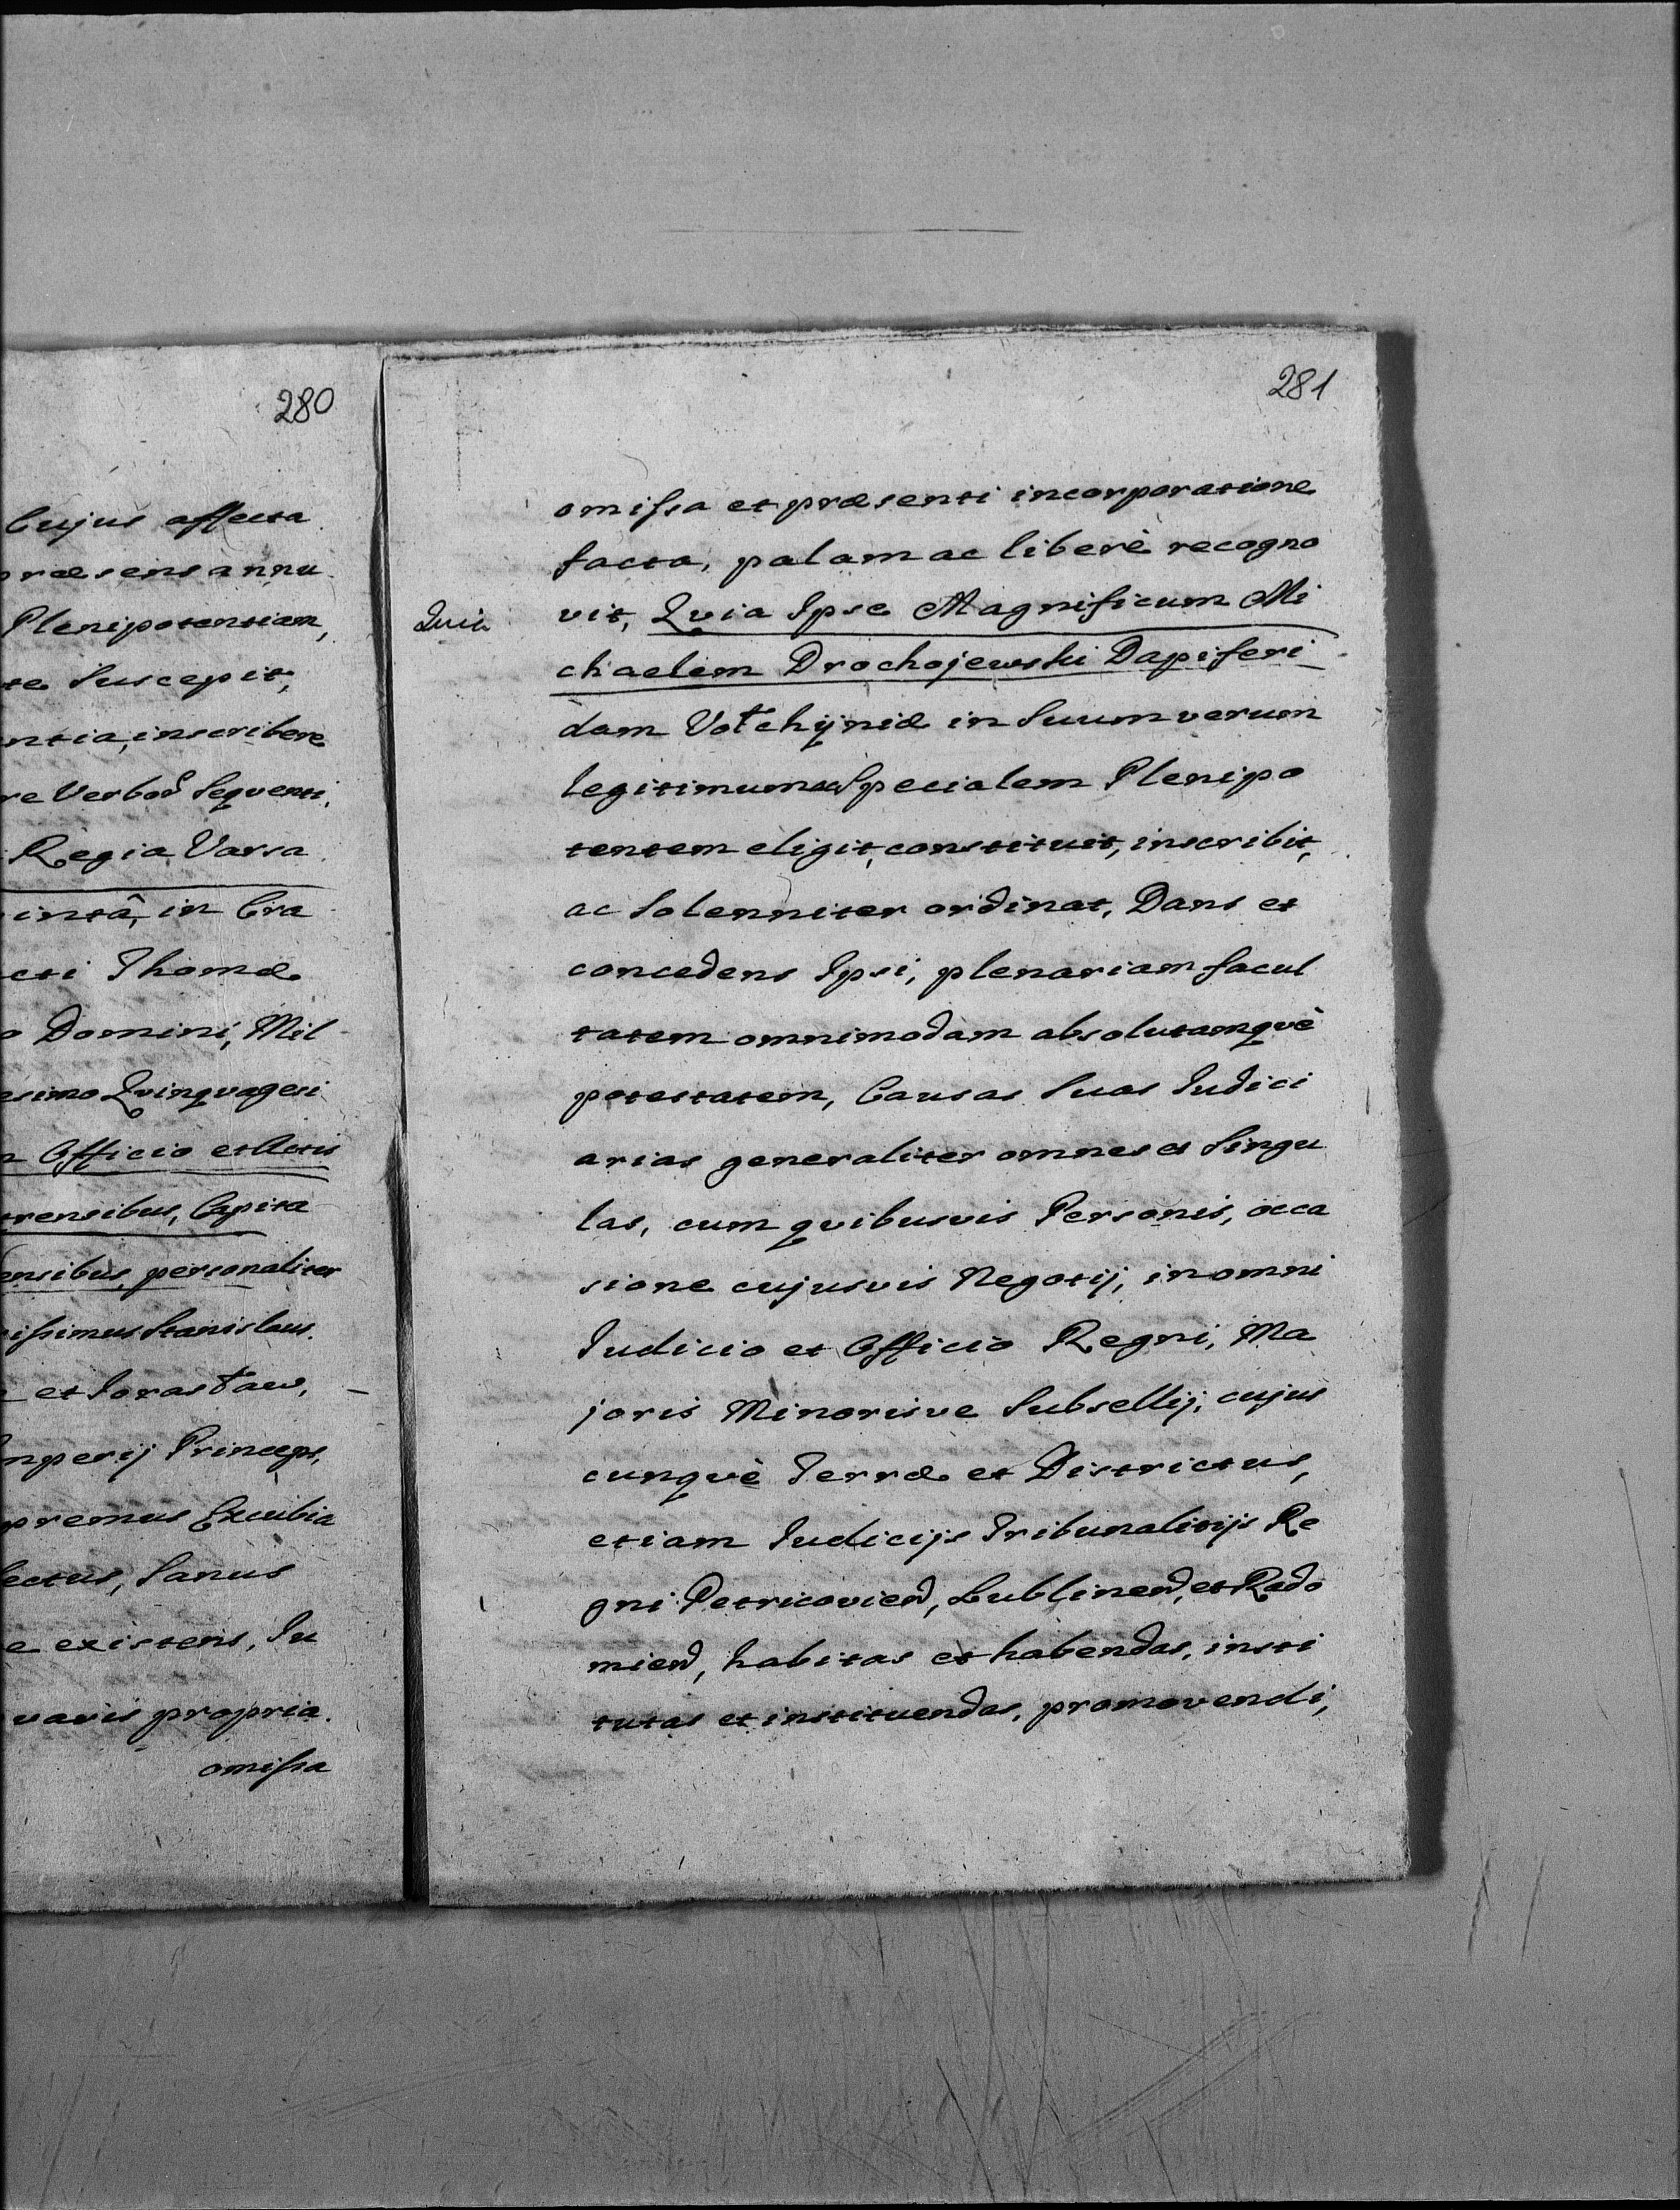 280
Cujus affecta
præsens annu
Plenipotentiam,
te Suscepit,
ntia, inscribere
re Verborũ Sequenti,
Regia Varsa
intâ, in Cra
cti Thomæ
o Domini, Mil
esimo Qvinqvagesi
n Officio et Actis
trensibus, Capita
ensibus, personaliter
ißimus Stanislaus
et Jorasław,
Imperij Princeps,
premus Excubia
lectus, Sanus
e existens, Ju
varis propria
omißa
281
omißa et præsenti incorporatione
facta, palam ac liberè recogno
Quia
vit, Qvia Ipse Magnificum Mi
chaelem Drochojewski Dapiferi
dam Vołchÿniæ in Suum verum
legitimum ac Specialem Plenipo
tentem eligit, constituit, inscribit,
ac Solenniter ordinat, Dans et
concedens Ipsi, plenariam facul
tatem omnimodam absolutamqvè
potestatem, Causas Suas Judici
arias generaliter omnes et Singu
las, cum qvibusvis Personis, occa
sione cujusvis Negotij, in omni
Judicio et Officio Regni, Ma
joris Minorisve Subsellij, cujus
cunqvè Terræ et Districtus,
etiam Judicijs Tribunalitijs Re
gni Petricovień, Lublineñ, et Rado
mień, habitas et habendas, insti
tutas et instituendas, promovendi,